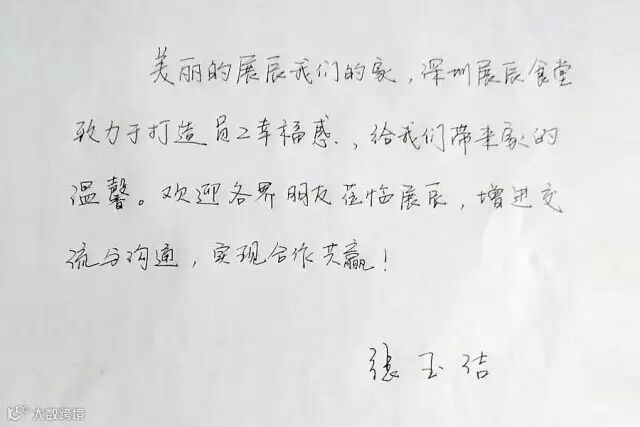 美丽的展辰我们的家，深圳展辰食堂
致力于打造员工幸福感，给我们带来家的
温馨。欢迎各界朋友莅临展辰，增进交
流与沟通，实现合作共赢！
张玉洁
大数跨境